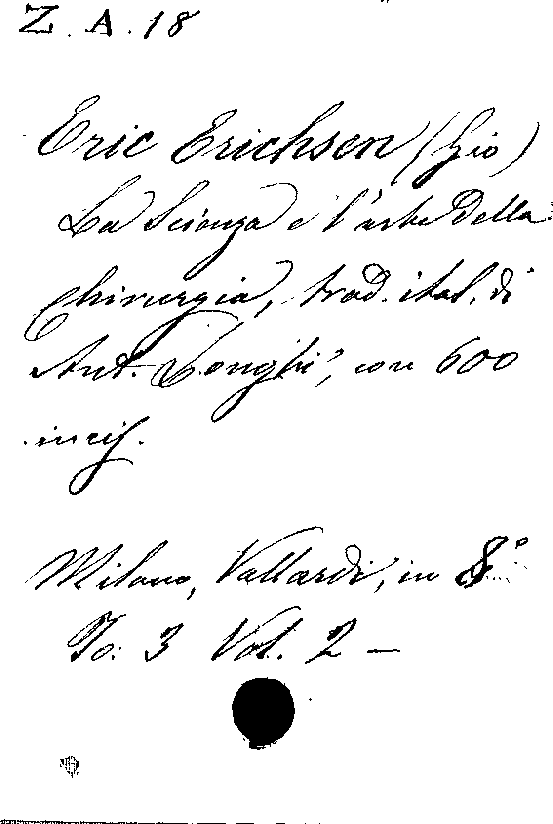 Z. A. 18
Eric Erichsen (Gio)
La Scienza e l'arte della
Chirurgia, trad. ital. di
Ant. Longhi, con 600
incis.
Milano, Vallardi, in 8°
To. 3 Vol. 2 —